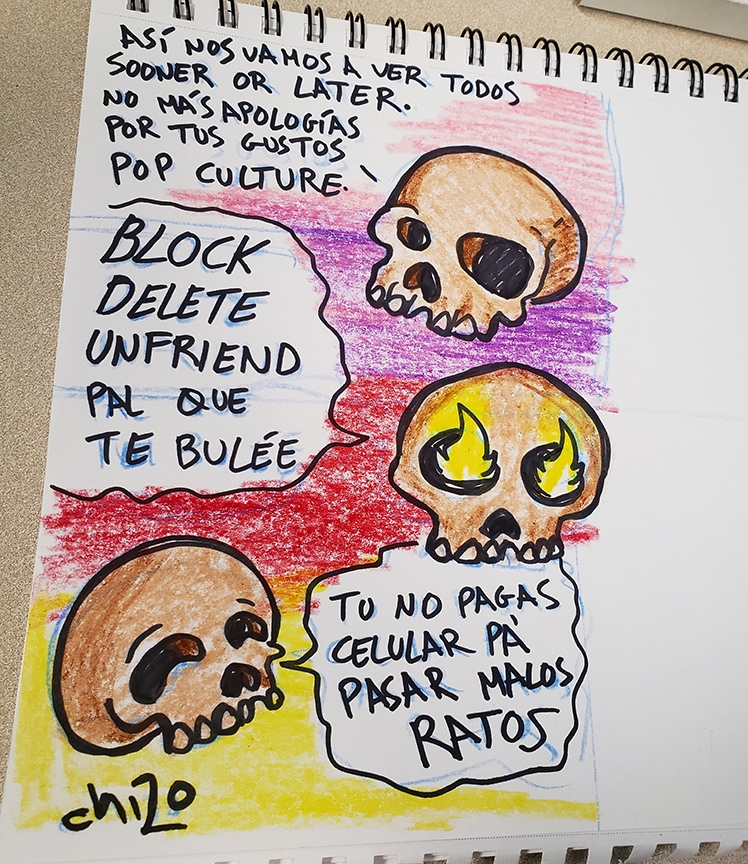 ASÍ NOS VAMOS A VER TODOS
SOONER OR LATER.
NO MÁS APOLOGÍAS
POR TUS GUSTOS
POP CULTURE.
BLOCK
DELETE
UNFRIEND
PAL QUE
TE BULÉE
TU NO PAGAS
CELULAR PÁ
PASAR MALOS
RATOS
chizo